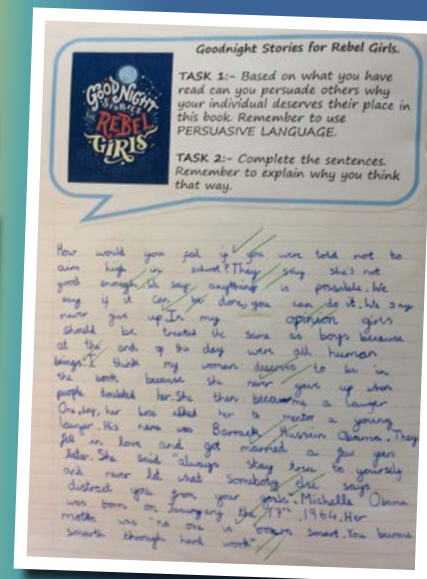 Goodnight Stories for Rebel Girls.
GOOD NIGHT
STORIES
FOR
REBEL
GIRLS
TASK 1:- Based on what you have
read can you persuade others why
your individual deserves their place in
this book. Remember to use
PERSUASIVE LANGUAGE.
TASK 2:- Complete the sentences.
Remember to explain why you think
that way.
How would you feel if you were told not to
aim high in school? They say she's not
good enough. We say anything is possible. We
say if it can be done, you can do it. We say
never give up. In my opinion girls
should be treated the same as boys because
at the end of the day were all human
beings. I think my woman deserves to be in
the book because she never gave up when
people doubted her. She then became a lawyer
One day, her boss asked her to mentor a young
lawyer. His name was Barrack Hussein Obama. They
fell in love and got married a few years
later. She said "always stay true to yourself
and never let what somebody else says
distract you from your goals". Michelle Obama
was born on the 17th, 1964. Her
motto was "no one is born smart. You become
smart through hard work"